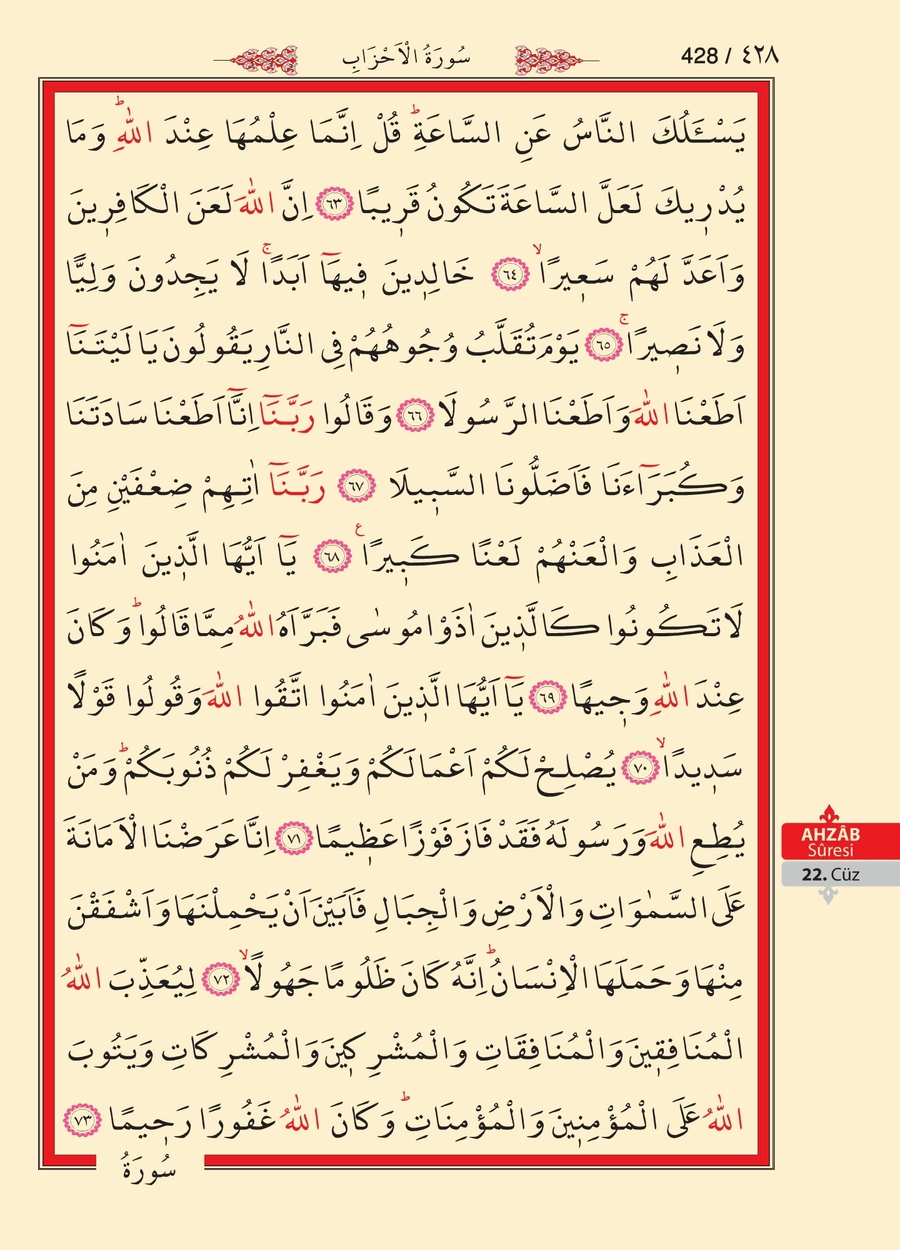 سُورَةُ الْاَحْزَابِ
428 / ٤٢٨
يَسْـَٔلُكَ النَّاسُ عَنِ السَّاعَةِۜ قُلْ اِنَّمَا عِلْمُهَا عِنْدَ اللّٰهِۜ وَمَا
يُدْر۪يكَ لَعَلَّ السَّاعَةَ تَكُونُ قَر۪يبًا ﴿٦٣﴾ اِنَّ اللّٰهَ لَعَنَ الْكَافِر۪ينَ
وَاَعَدَّ لَهُمْ سَع۪يرًاۙ ﴿٦٤﴾ خَالِد۪ينَ ف۪يهَٓا اَبَدًاۚ لَا يَجِدُونَ وَلِيًّا
وَلَا نَص۪يرًاۚ ﴿٦٥﴾ يَوْمَ تُقَلَّبُ وُجُوهُهُمْ فِي النَّارِ يَقُولُونَ يَا لَيْتَنَٓا
اَطَعْنَا اللّٰهَ وَاَطَعْنَا الرَّسُولَا ﴿٦٦﴾ وَقَالُوا رَبَّنَٓا اِنَّٓا اَطَعْنَا سَادَتَنَا
وَكُبَرَٓاءَنَا فَاَضَلُّونَا السَّب۪يلَا ﴿٦٧﴾ رَبَّنَٓا اٰتِهِمْ ضِعْفَيْنِ مِنَ
الْعَذَابِ وَالْعَنْهُمْ لَعْنًا كَب۪يرًا۟ ع ﴿٦٨﴾ يَٓا اَيُّهَا الَّذ۪ينَ اٰمَنُوا
لَا تَكُونُوا كَالَّذ۪ينَ اٰذَوْا مُوسٰى فَبَرَّاَهُ اللّٰهُ مِمَّا قَالُواۜ وَكَانَ
عِنْدَ اللّٰهِ وَج۪يهًا ﴿٦٩﴾ يَٓا اَيُّهَا الَّذ۪ينَ اٰمَنُوا اتَّقُوا اللّٰهَ وَقُولُوا قَوْلًا
سَد۪يدًاۙ ﴿٧٠﴾ يُصْلِحْ لَكُمْ اَعْمَالَكُمْ وَيَغْفِرْ لَكُمْ ذُنُوبَكُمْۜ وَمَنْ
يُطِعِ اللّٰهَ وَرَسُولَهُ فَقَدْ فَازَ فَوْزًا عَظ۪يمًا ﴿٧١﴾ اِنَّا عَرَضْنَا الْاَمَانَةَ
عَلَى السَّمٰوَاتِ وَالْاَرْضِ وَالْجِبَالِ فَاَبَيْنَ اَنْ يَحْمِلْنَهَا وَاَشْفَقْنَ
مِنْهَا وَحَمَلَهَا الْاِنْسَانُۜ اِنَّهُ كَانَ ظَلُومًا جَهُولًاۙ ﴿٧٢﴾ لِيُعَذِّبَ اللّٰهُ
الْمُنَافِق۪ينَ وَالْمُنَافِقَاتِ وَالْمُشْرِك۪ينَ وَالْمُشْرِكَاتِ وَيَتُوبَ
اللّٰهُ عَلَى الْمُؤْمِن۪ينَ وَالْمُؤْمِنَاتِۜ وَكَانَ اللّٰهُ غَفُورًا رَح۪يمًا ﴿٧٣﴾
سُورَةُ
AHZÂB
Sûresi
22. Cüz